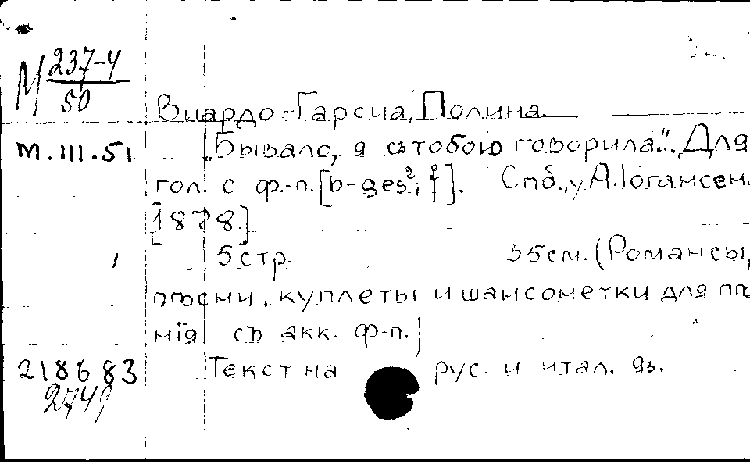 М 237-4
50
Виардо-Гарсиа, Полина.
м.III.51 "Бывало, я съ тобою говорила". Для
гол. с ф.-п. [b-ges²; f]. Спб., у А. Іогансен.
[1878.]
5 стр. 35см. (Романсы,
пѣсни, куплеты и шансонетки для пѣ
нія съ акк. ф-п.)
218683 Текст на рус. и итал. яз.